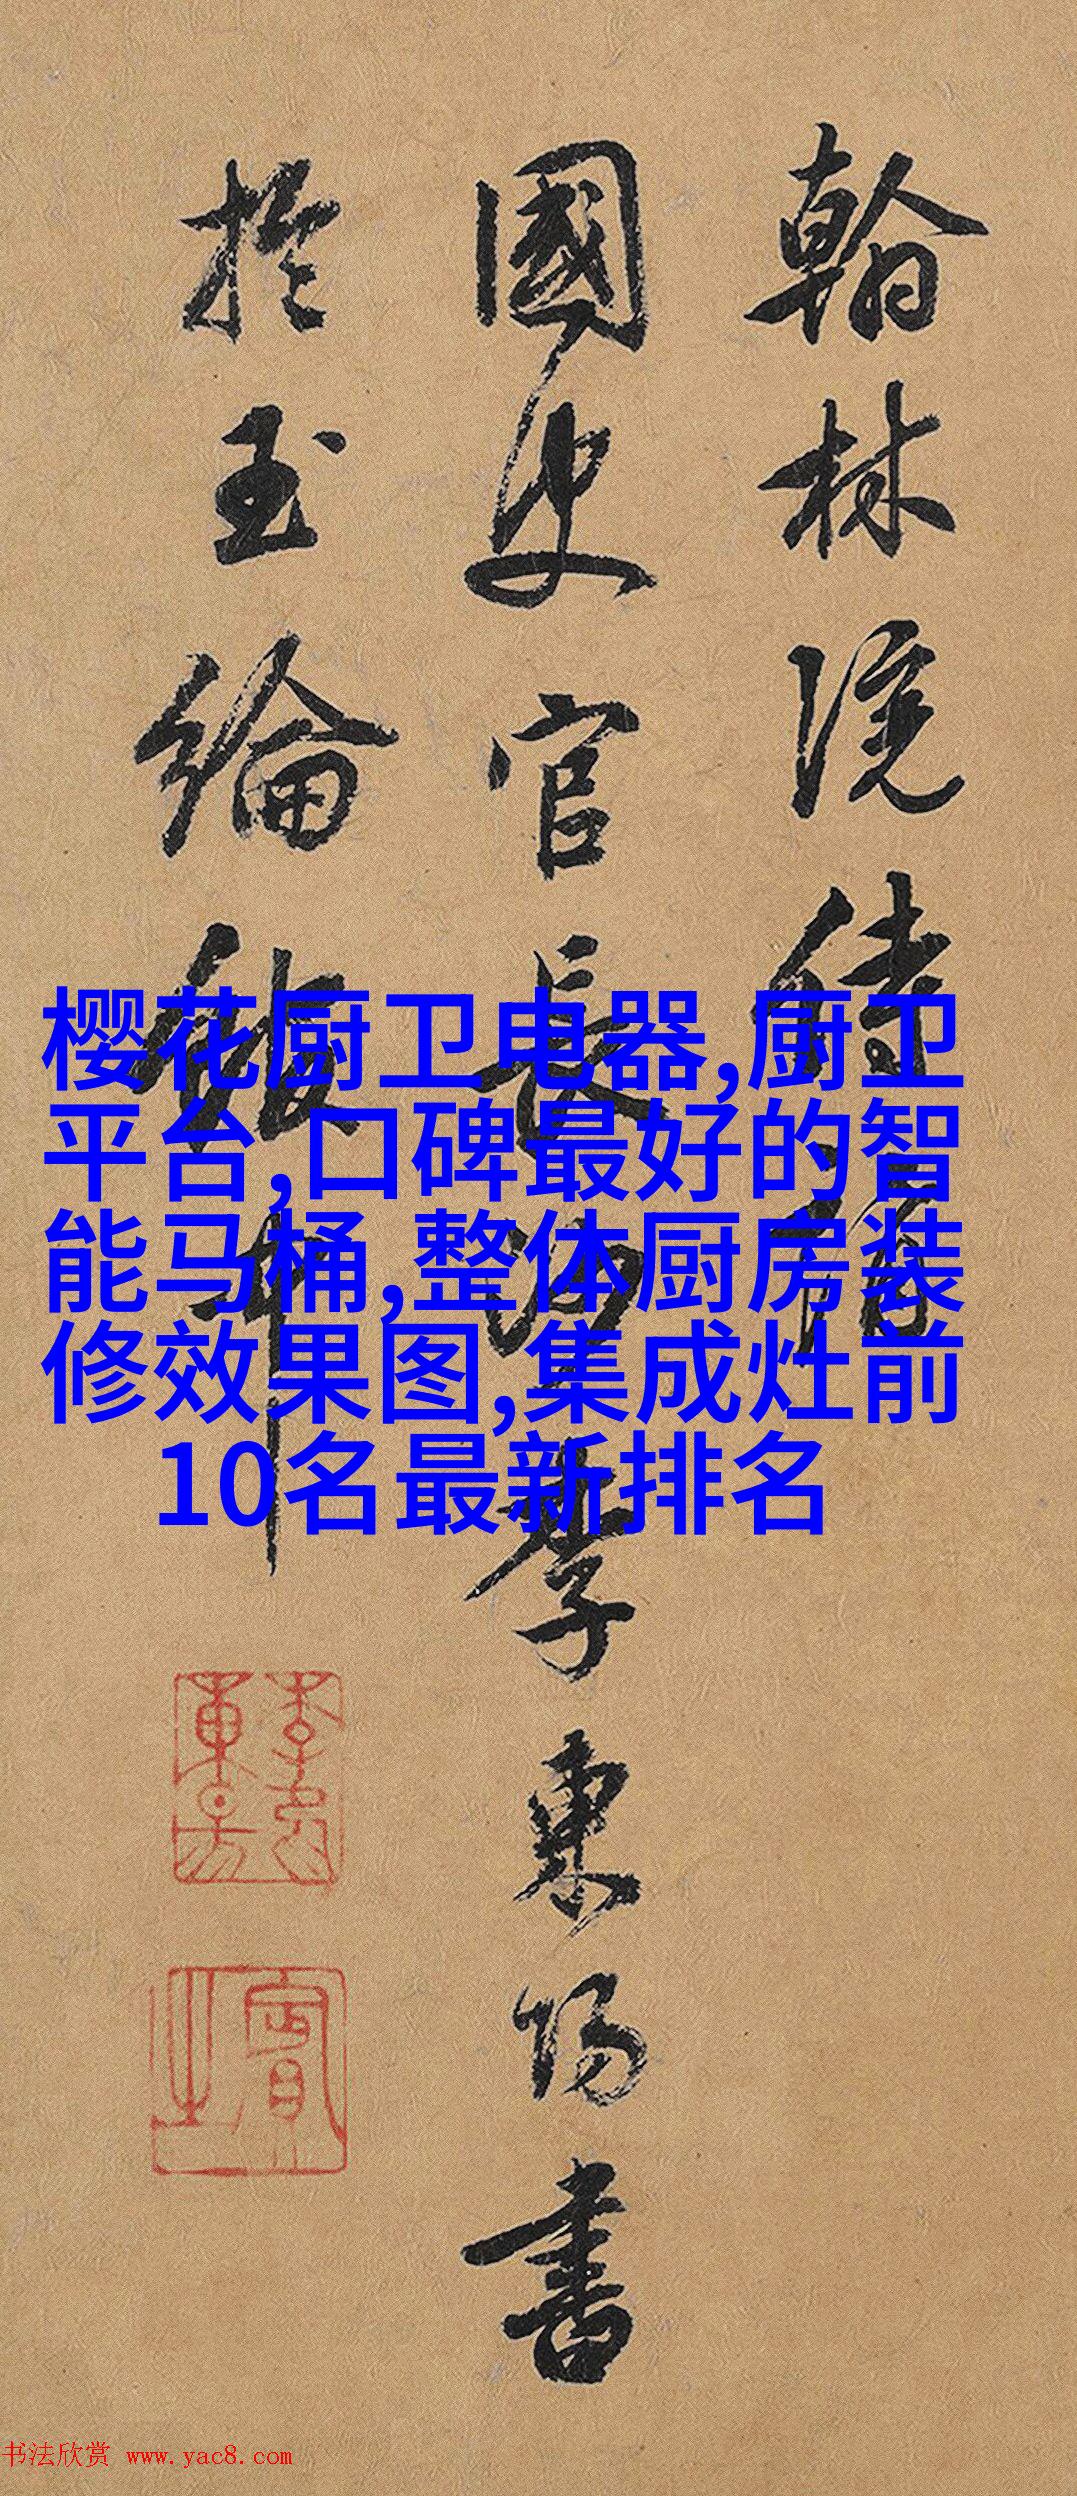 翰林院侍講
國史官長沙李東陽書
於玉綸中
賓之
樱花厨卫电器,厨卫
平台,口碑最好的智
能马桶,整体厨房装
修效果图,集成灶前
10名最新排名
书法欣赏 www.yac8.com